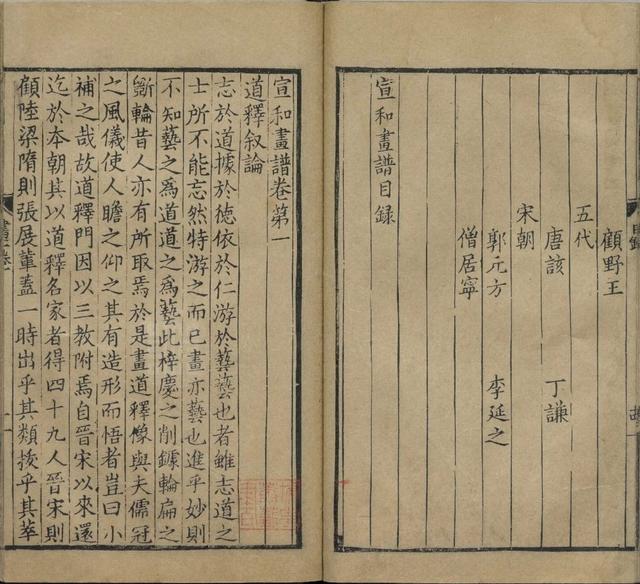 顧野王
五代
唐該 丁謙
宋朝
郭元方 李延之
僧居寧
宣和畫譜目録
宣和畫譜卷第一
道釋叙論
志於道據於徳依於仁游於藝藝也者雖志道之
士所不能忘然特游之而已畫亦藝也進乎妙則
不知藝之為道道之為藝此梓慶之削鐻輪扁之
斵輪昔人亦有所取焉於是畫道釋像與夫儒冠
之風儀使人瞻之仰之其有造形而悟者豈曰小
補之哉故道釋門因以三教附焉自晉宋以來還
迄於本朝其以道釋名家者得四十九人晉宋則
顧陸梁隋則張展董蓋一時出乎其類抜乎其萃